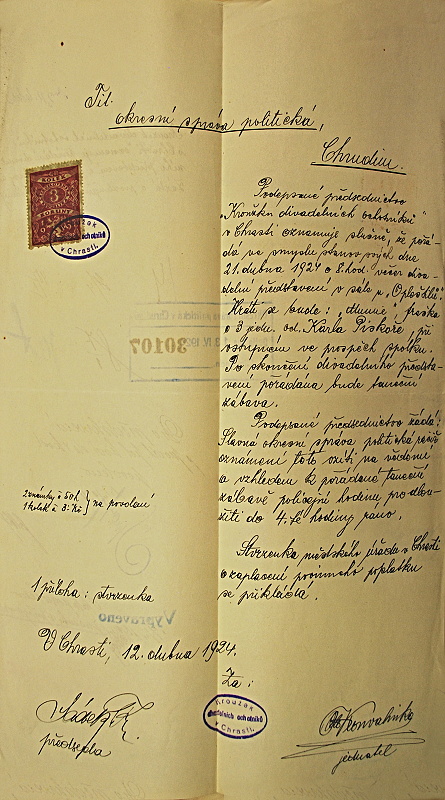 Tit.
okresní správa politická,
Chrudim.
KOLEK
3
KORUNY
Kroužek
divadelních ochotníků
v Chrasti.
Podepsané předsednictvo
„Kroužku divadelních ochotníků“
v Chrasti oznamuje slušně, že pořá-
dá ve smyslu stanov svých dne
21. dubna 1924 o 8 hod. večer diva-
delní představení v sále p. „Oploštila“
Hráti se bude: fraška
o 3 jedn. od Karla Piskoře, při
vstupném ve prospěch spolku.
Po skončení divadelního předsta-
vení pořádána bude taneční
zábava.
30107
Podepsané předsednictvo žádá:
Slavná okresní správa politická račiž
oznámení toto vzíti na vědomí
a vzhledem k pořádané taneční
zábavě policejní hodinu prodlou-
žiti do 4-té hodiny ráno.
2 známky à 50 h
1 kolek à 3 Kč } na povolení
Stvrzenka městského úřadu v Chrasti
o zaplacení povinného poplatku
se přikládá.
1 příloha: stvrzenka
Vypraveno
V Chrasti, 12. dubna 1924.
Za:
Kroužek
divadelních ochotníků
v Chrasti.
předseda
Konvalinka
jednatel